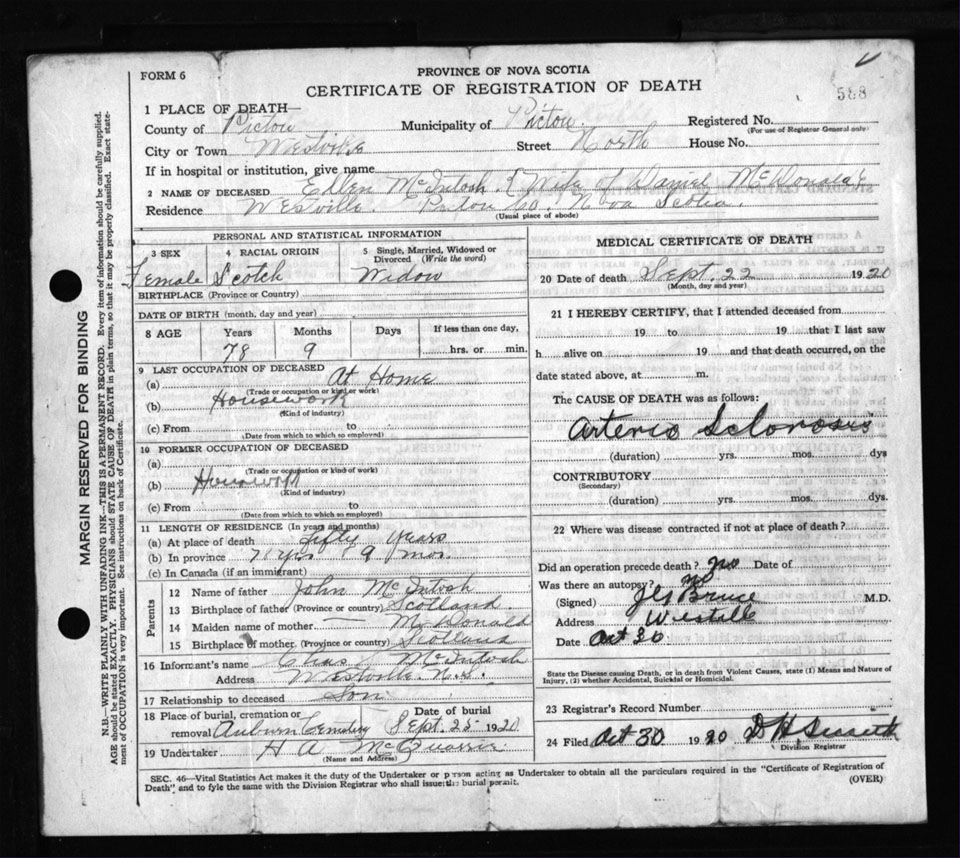 FORM 6
PROVINCE OF NOVA SCOTIA
CERTIFICATE OF REGISTRATION OF DEATH
588
1 PLACE OF DEATH—
County of Pictou Municipality of Pictou Registered No.
(For use of Registrar General only)
City or Town Westville Street North House No.
If in hospital or institution, give name
2 NAME OF DECEASED Ellen McIntosh (Wife of Daniel McDonald)
Residence Westville Pictou Co. Nova Scotia.
(Usual place of abode)
PERSONAL AND STATISTICAL INFORMATION
3 SEX 4 RACIAL ORIGIN 5 Single, Married, Widowed or Divorced (Write the word)
Female Scotch Widow
BIRTHPLACE (Province or Country)
DATE OF BIRTH (month, day and year)
8 AGE Years Months Days If less than one day,
78 9 hrs. or min.
9 LAST OCCUPATION OF DECEASED
(a) At Home
(Trade or occupation or kind of work)
(b) Housework
(Kind of industry)
(c) From to
(Date from which to which so employed)
10 FORMER OCCUPATION OF DECEASED
(a)
(Trade or occupation or kind of work)
(b) Housework
(Kind of industry)
(c) From to
(Date from which to which so employed)
11 LENGTH OF RESIDENCE (In years and months)
(a) At place of death fifty years
(b) In province yrs 9 mos.
(c) In Canada (if an immigrant)
Parents
12 Name of father John McIntosh
13 Birthplace of father (Province or country) Scotland
14 Maiden name of mother — McDonald
15 Birthplace of mother (Province or country) Scotland
16 Informant's name Chas McIntosh
Address Westville N.S.
17 Relationship to deceased Son
18 Place of burial, cremation or Date of burial
removal Auburn Cemetery Sept. 25 1920
19 Undertaker H A
(Name and Address)
MEDICAL CERTIFICATE OF DEATH
20 Date of death Sept. 22 1920
(Month, day and year)
21 I HEREBY CERTIFY, that I attended deceased from
19 to 19 that I last saw
h alive on 19 and that death occurred, on the
date stated above, at m.
The CAUSE OF DEATH was as follows:
Arterio Sclorosis
(duration) yrs. mos. dys
CONTRIBUTORY
(Secondary)
(duration) yrs. mos. dys.
22 Where was disease contracted if not at place of death?
Did an operation precede death? no Date of
Was there an autopsy? no
(Signed) Bruce M.D.
Address
Date Oct 30
State the Disease causing Death, or in death from Violent Causes, state (1) Means and Nature of
Injury, (2) whether Accidental, Suicidal or Homicidal.
23 Registrar's Record Number
24 Filed Oct 30 1920
Division Registrar
SEC. 46—Vital Statistics Act makes it the duty of the Undertaker or person acting as Undertaker to obtain all the particulars required in the "Certificate of Registration of
Death" and to fyle the same with the Division Registrar who shall issue the burial permit. (OVER)
MARGIN RESERVED FOR BINDING
N.B.—WRITE PLAINLY WITH UNFADING INK—THIS IS A PERMANENT RECORD. Every item of information should be carefully supplied.
AGE should be stated EXACTLY. PHYSICIANS should STATE CAUSE OF DEATH in plain terms, so that it may be properly classified. Exact state-
ment of OCCUPATION is very important. See instructions on back of Certificate.